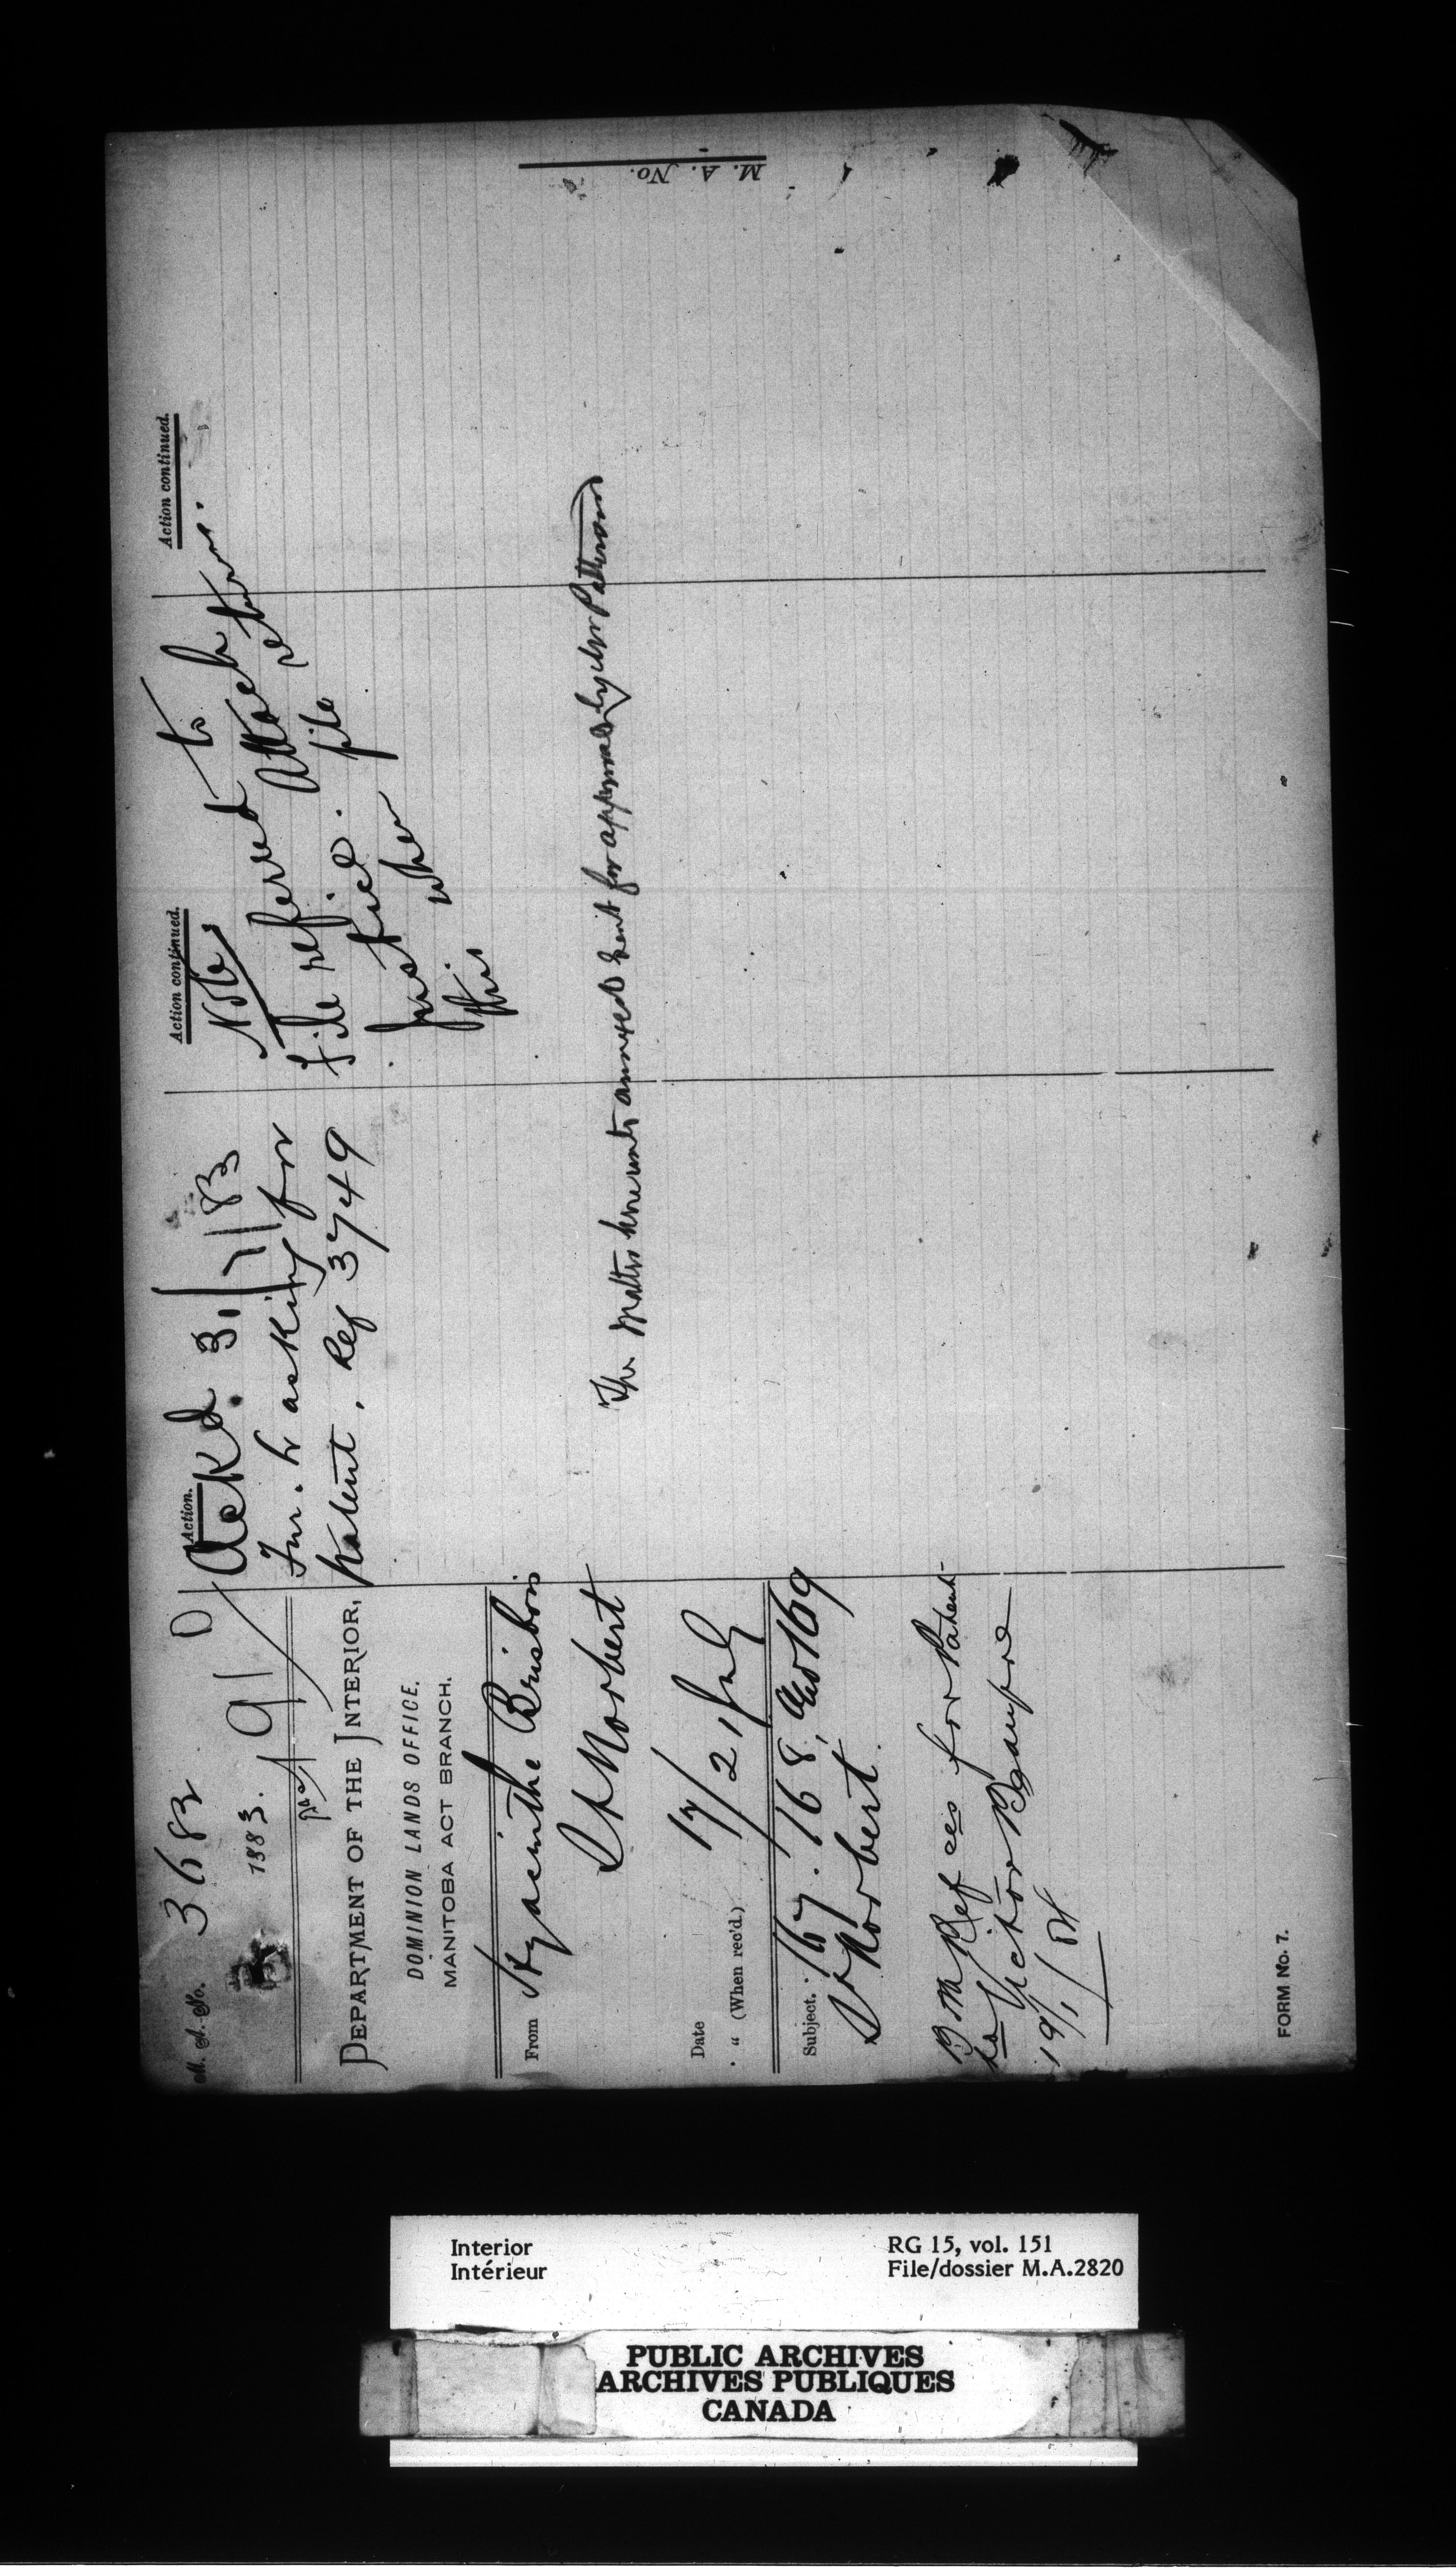 M. A. No. 3683
1883.
DEPARTMENT OF THE INTERIOR,
DOMINION LANDS OFFICE.
MANITOBA ACT BRANCH.
From Hyacinthe Brisbois
St Norbert
Date 17/2, July
" (When rec'd.)
Subject. 167. 168, and 169
St Norbert.
for Patent
to Victor Beaupre
19/1/84
FORM No. 7.
Action.
Ackd. 31/7/83
Fur. Lr asking for
Patent. Ref 3749
Action continued.
Note,
File referred to
Justice. Attach
this when file
returns.
The Matter hereunto annexed sent for approval by Mr Patterson
Action continued.
M. A. No.
Interior
Intérieur
RG 15, vol. 151
File/dossier M.A.2820
PUBLIC ARCHIVES
ARCHIVES PUBLIQUES
CANADA